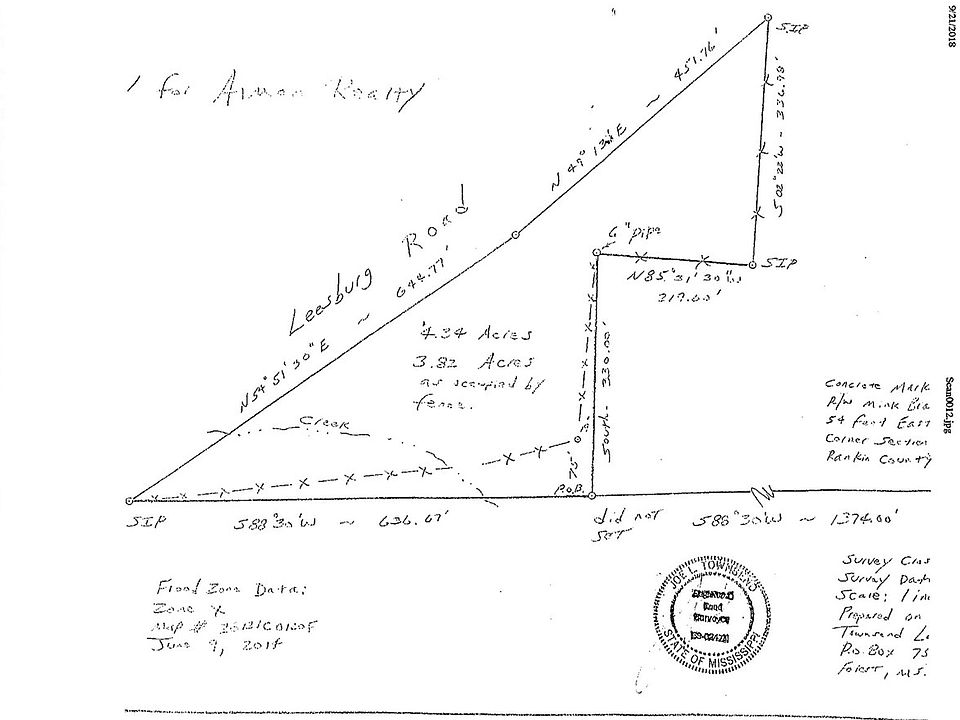 9/21/2018
Scan0012.jpg
' For Realty
S.I.P
451.76'
~
N 49° 13' E
S 02° 22' W - 336.98'
Leesburg Road
644.77'
~
N 54° 51' 30" E
6" pipe
S.I.P
N85° 31' 30" W
219.60'
4.34 Acres
3.82 Acres
as occupied by
fence.
South - 330.00'
Creek
75'
P.O.B.
S.I.P
S88° 30' W ~ 636.67'
did not
SET
S88° 30' W ~ 1374.00'
Concrete Mark
R/W Mink Bra
54 Feet East
Corner Section
Rankin County
Flood Zone Data:
Zone X
Map #
June 9, 2014
JOE L. TOWNSEND
STATE OF MISSISSIPPI
Survey Clas
Survey Dat
Scale: 1 in
Prepared on
Townsend L
P.O. Box 75
Forest, MS.